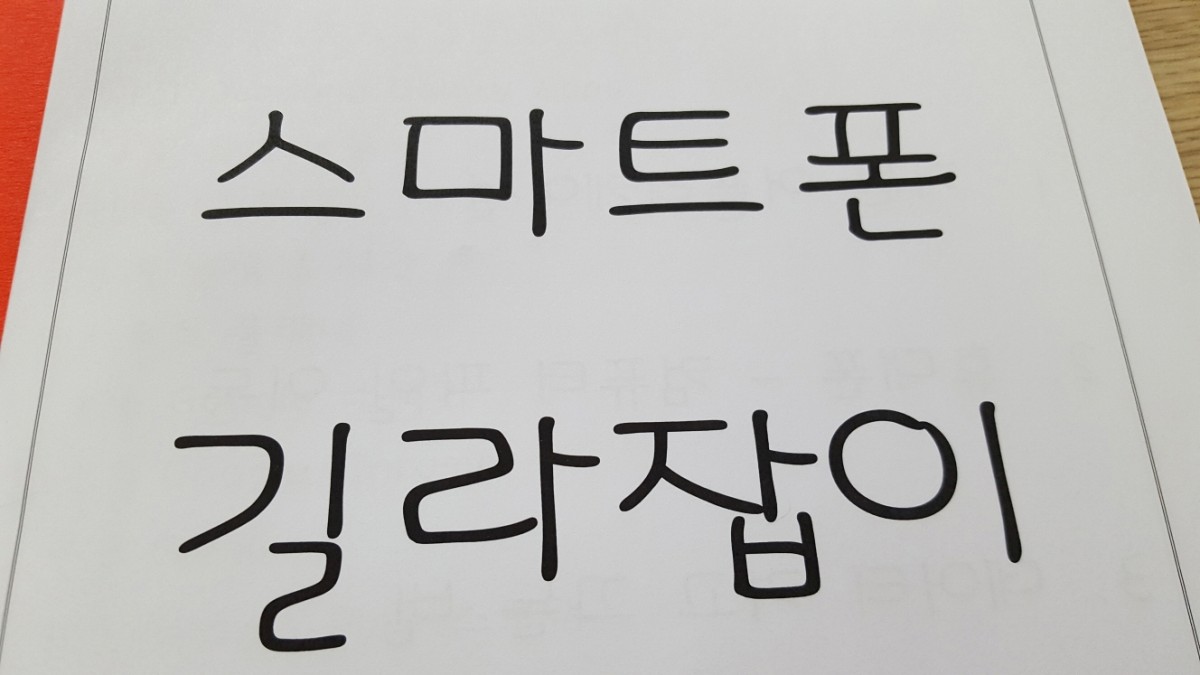 스마트폰
길라잡이